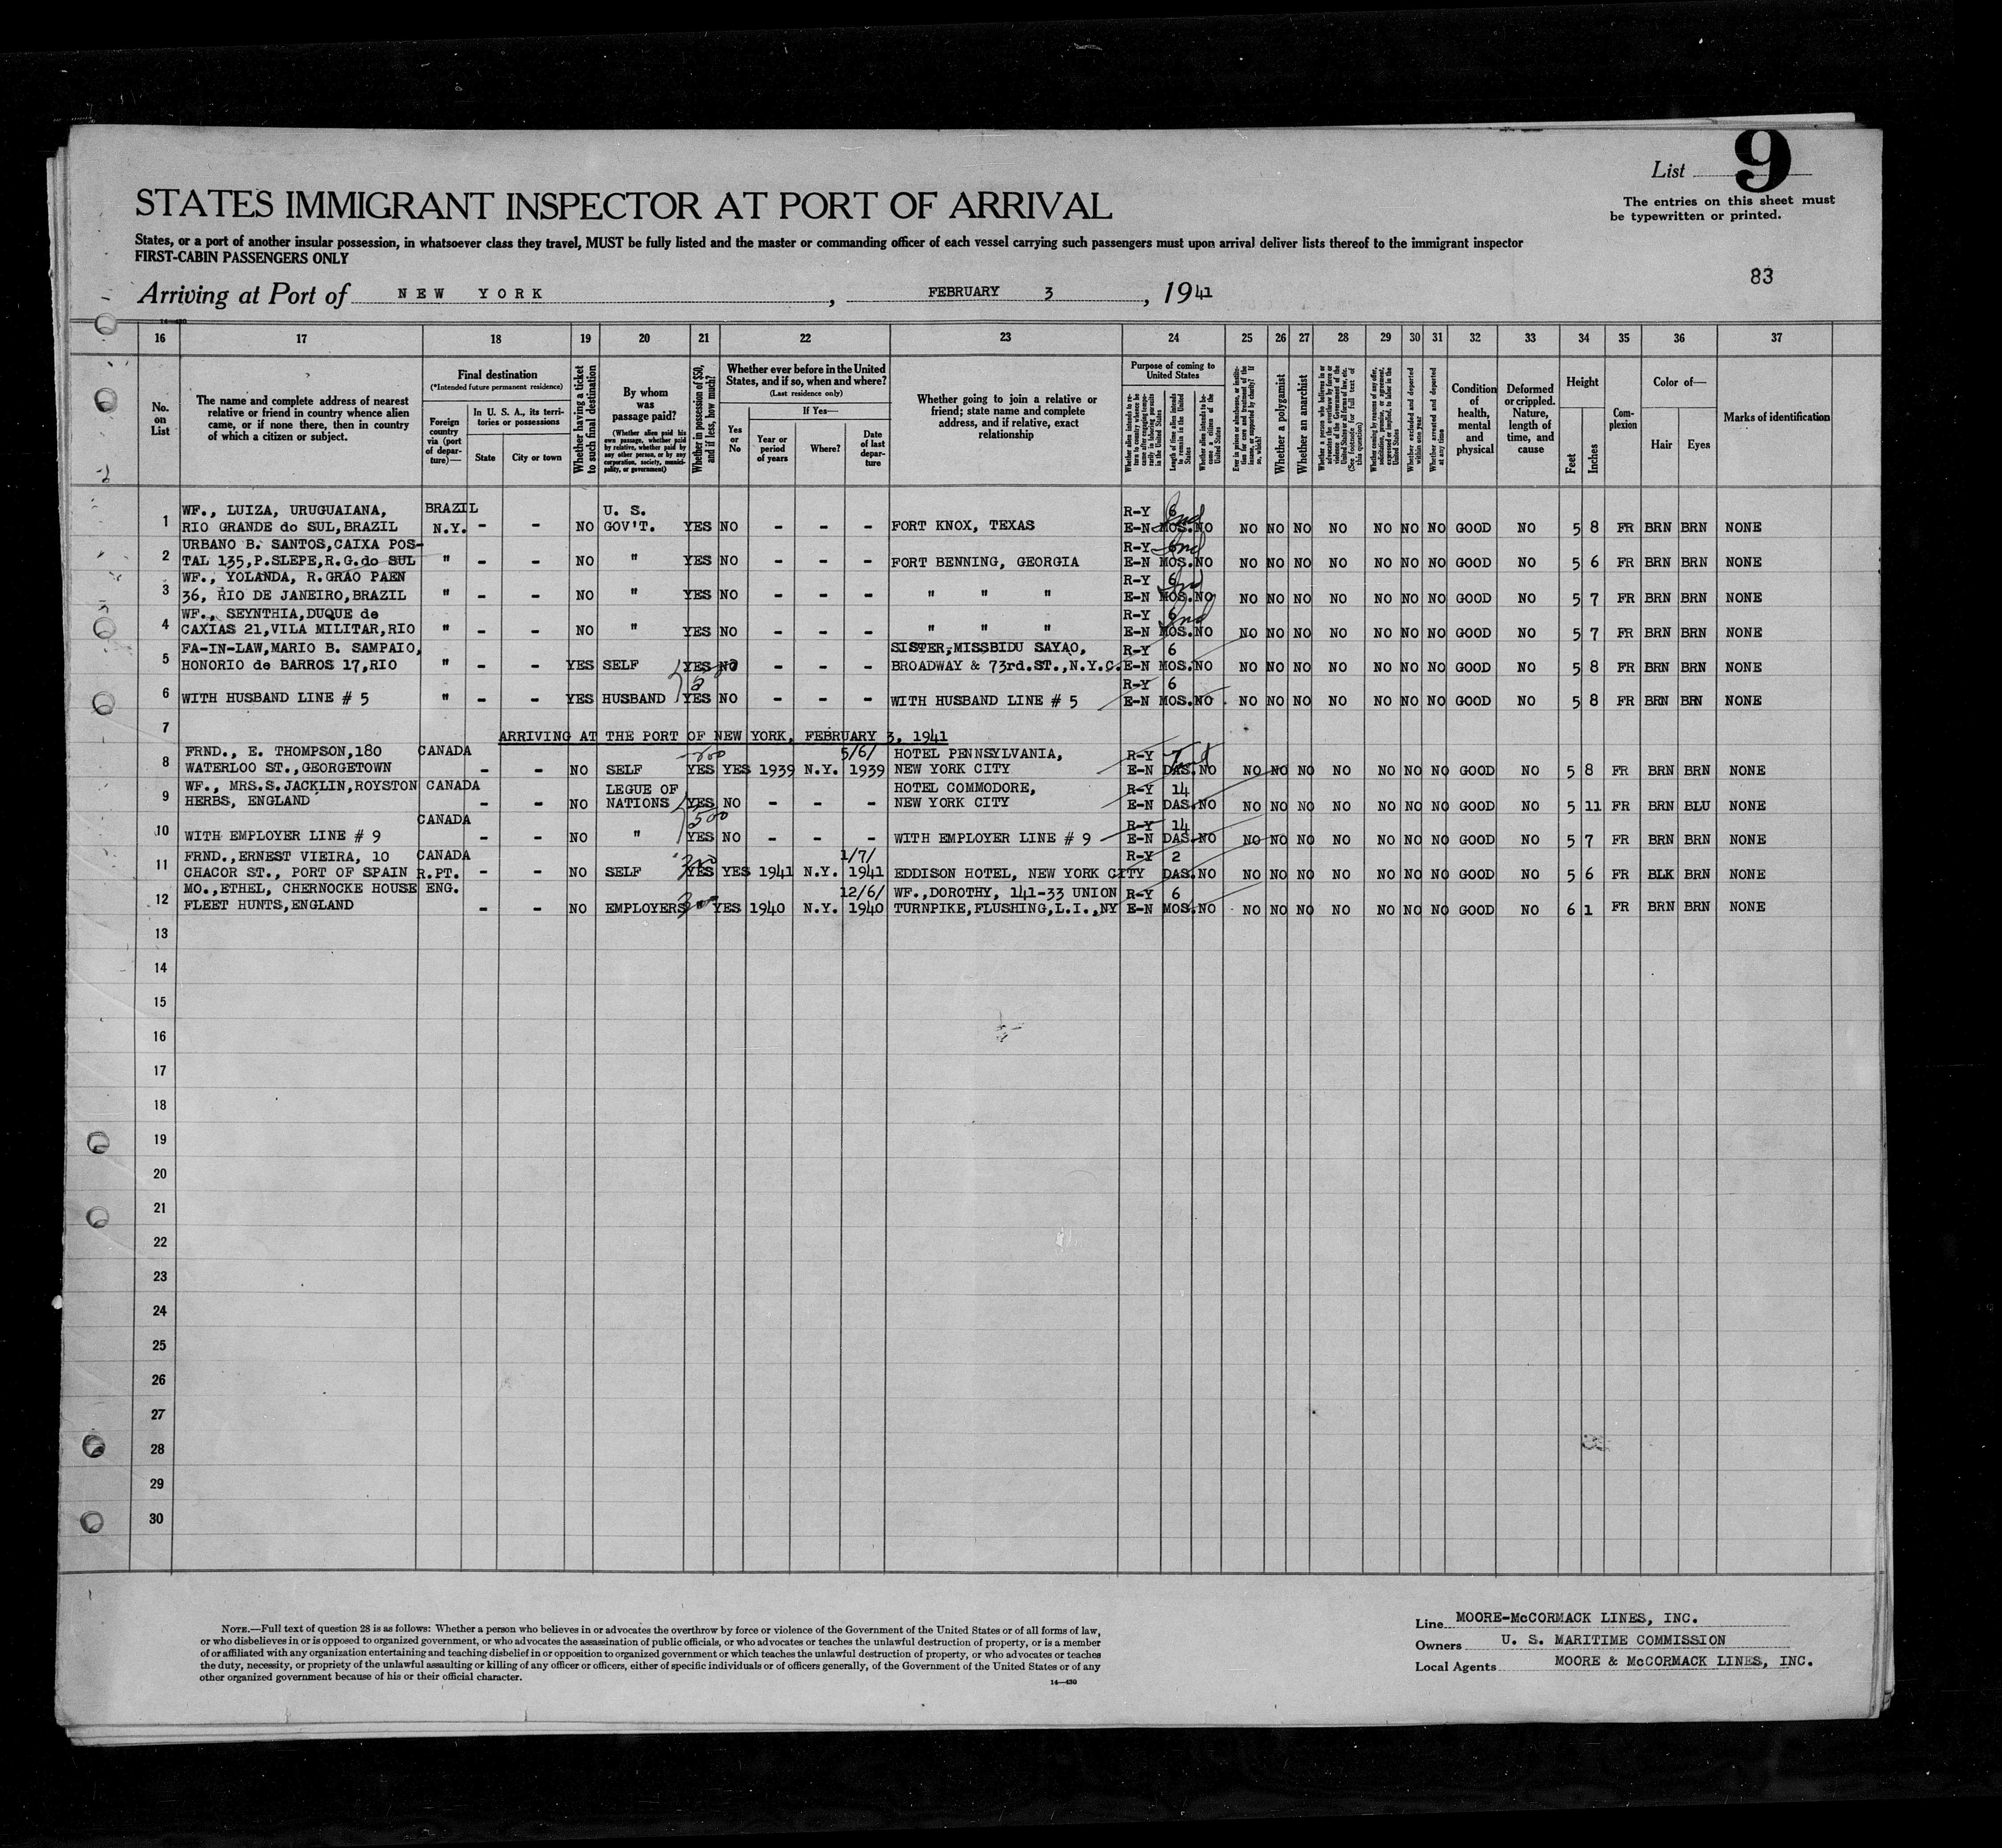 List 9
The entries on this sheet must
be typewritten or printed.
STATES IMMIGRANT INSPECTOR AT PORT OF ARRIVAL
States, or a port of another insular possession, in whatsoever class they travel, MUST be fully listed and the master or commanding officer of each vessel carrying such passengers must upon arrival deliver lists thereof to the immigrant inspector
FIRST-CABIN PASSENGERS ONLY
83
Arriving at Port of NEW YORK, FEBRUARY 3, 1941
14—430
16 17 18 19 20 21 22 23 24 25 26 27 28 29 30 31 32 33 34 35 36 37
No. on List
The name and complete address of nearest relative or friend in country whence alien came, or if none there, then in country of which a citizen or subject.
Final destination
(*Intended future permanent residence)
Foreign country via (port of departure)—
In U. S. A., its territories or possessions
State
City or town
Whether having a ticket to such final destination
By whom was passage paid?
(Whether alien paid his own passage, whether paid by relative, whether paid by any other person, or by any corporation, society, municipality, or government)
Whether in possession of $50, and if less, how much?
Whether ever before in the United States, and if so, when and where?
(Last residence only)
Yes or No
If Yes—
Year or period of years
Where?
Date of last departure
Whether going to join a relative or friend; state name and complete address, and if relative, exact relationship
Purpose of coming to United States
Length of time alien intends to remain in the United States
Whether alien intends to become a citizen of the United States
Whether a polygamist
Whether an anarchist
Whether excluded and deported within one year
Whether arrested and deported at any time
Condition of health, mental and physical
Deformed or crippled. Nature, length of time, and cause
Height
Feet
Inches
Complexion
Color of—
Hair
Eyes
Marks of identification
WF., LUIZA, URUGUAIANA, BRAZIL U. S. R-Y 6
1 RIO GRANDE do SUL, BRAZIL N.Y. - - NO GOV'T. YES NO - - - FORT KNOX, TEXAS E-N MOS. NO NO NO NO NO NO NO NO GOOD NO 5 8 FR BRN BRN NONE
URBANO B. SANTOS, CAIXA POS- R-Y 6
2 TAL 135, P.SLEPE, R.G.do SUL " - - NO " YES NO - - - FORT BENNING, GEORGIA E-N MOS. NO NO NO NO NO NO NO NO GOOD NO 5 6 FR BRN BRN NONE
WF., YOLANDA, R.GRAO PAEN R-Y 6
3 36, RIO DE JANEIRO, BRAZIL " - - NO " YES NO - - - " " " E-N MOS. NO NO NO NO NO NO NO NO GOOD NO 5 7 FR BRN BRN NONE
WF., SEYNTHIA, DUQUE de R-Y 6
4 CAXIAS 21, VILA MILITAR, RIO " - - NO " YES NO - - - " " " E-N MOS. NO NO NO NO NO NO NO NO GOOD NO 5 7 FR BRN BRN NONE
FA-IN-LAW, MARIO B. SAMPAIO, SISTER, MISSBIDU SAYAO, R-Y 6
5 HONORIO de BARROS 17, RIO " - - YES SELF YES NO - - - BROADWAY & 73rd. ST., N.Y.C. E-N MOS. NO NO NO NO NO NO NO NO GOOD NO 5 8 FR BRN BRN NONE
R-Y 6
6 WITH HUSBAND LINE # 5 " - - YES HUSBAND YES NO - - - WITH HUSBAND LINE # 5 E-N MOS. NO NO NO NO NO NO NO NO GOOD NO 5 8 FR BRN BRN NONE
7 ARRIVING AT THE PORT OF NEW YORK, FEBRUARY 3, 1941
FRND., E. THOMPSON, 180 CANADA 5/6/ HOTEL PENNSYLVANIA, R-Y 7
8 WATERLOO ST., GEORGETOWN - - NO SELF YES YES 1939 N.Y. 1939 NEW YORK CITY E-N DAS. NO NO NO NO NO NO NO NO GOOD NO 5 8 FR BRN BRN NONE
WF., MRS.S.JACKLIN, ROYSTON CANADA LEGUE OF HOTEL COMMODORE, R-Y 14
9 HERBS, ENGLAND - - NO NATIONS YES NO - - - NEW YORK CITY E-N DAS. NO NO NO NO NO NO NO NO GOOD NO 5 11 FR BRN BLU NONE
CANADA 500 R-Y 14
10 WITH EMPLOYER LINE # 9 - - NO " YES NO - - - WITH EMPLOYER LINE # 9 E-N DAS. NO NO NO NO NO NO NO NO GOOD NO 5 7 FR BRN BRN NONE
FRND., ERNEST VIEIRA, 10 CANADA 1/7/ R-Y 2
11 CHACOR ST., PORT OF SPAIN R.PT. - - NO SELF YES YES 1941 N.Y. 1941 EDDISON HOTEL, NEW YORK CITY DAS. NO NO NO NO NO NO NO NO GOOD NO 5 6 FR BLK BRN NONE
MO., ETHEL, CHERNOCKE HOUSE ENG. 12/6/ WF., DOROTHY, 141-33 UNION R-Y 6
12 FLEET HUNTS, ENGLAND - - NO EMPLOYERS " YES 1940 N.Y. 1940 TURNPIKE, FLUSHING, L.I., NY E-N MOS. NO NO NO NO NO NO NO NO GOOD NO 6 1 FR BRN BRN NONE
13
14
15
16
17
18
19
20
21
22
23
24
25
26
27
28
29
30
NOTE.—Full text of question 28 is as follows: Whether a person who believes in or advocates the overthrow by force or violence of the Government of the United States or of all forms of law,
or who disbelieves in or is opposed to organized government, or who advocates the assassination of public officials, or who advocates or teaches the unlawful destruction of property, or is a member
of or affiliated with any organization entertaining and teaching disbelief in or opposition to organized government or which teaches the unlawful destruction of property, or who advocates or teaches
the duty, necessity, or propriety of the unlawful assaulting or killing of any officer or officers, either of specific individuals or of officers generally, of the Government of the United States or of any
other organized government because of his or their official character.
14—430
Line MOORE-McCORMACK LINES, INC.
Owners U. S. MARITIME COMMISSION
Local Agents MOORE & McCORMACK LINES, INC.